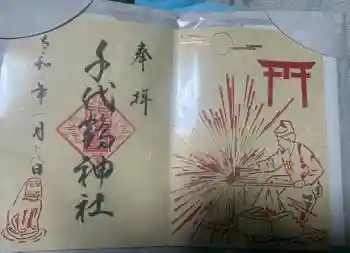 奉拝
千代鶴神社
令和 年一月 日